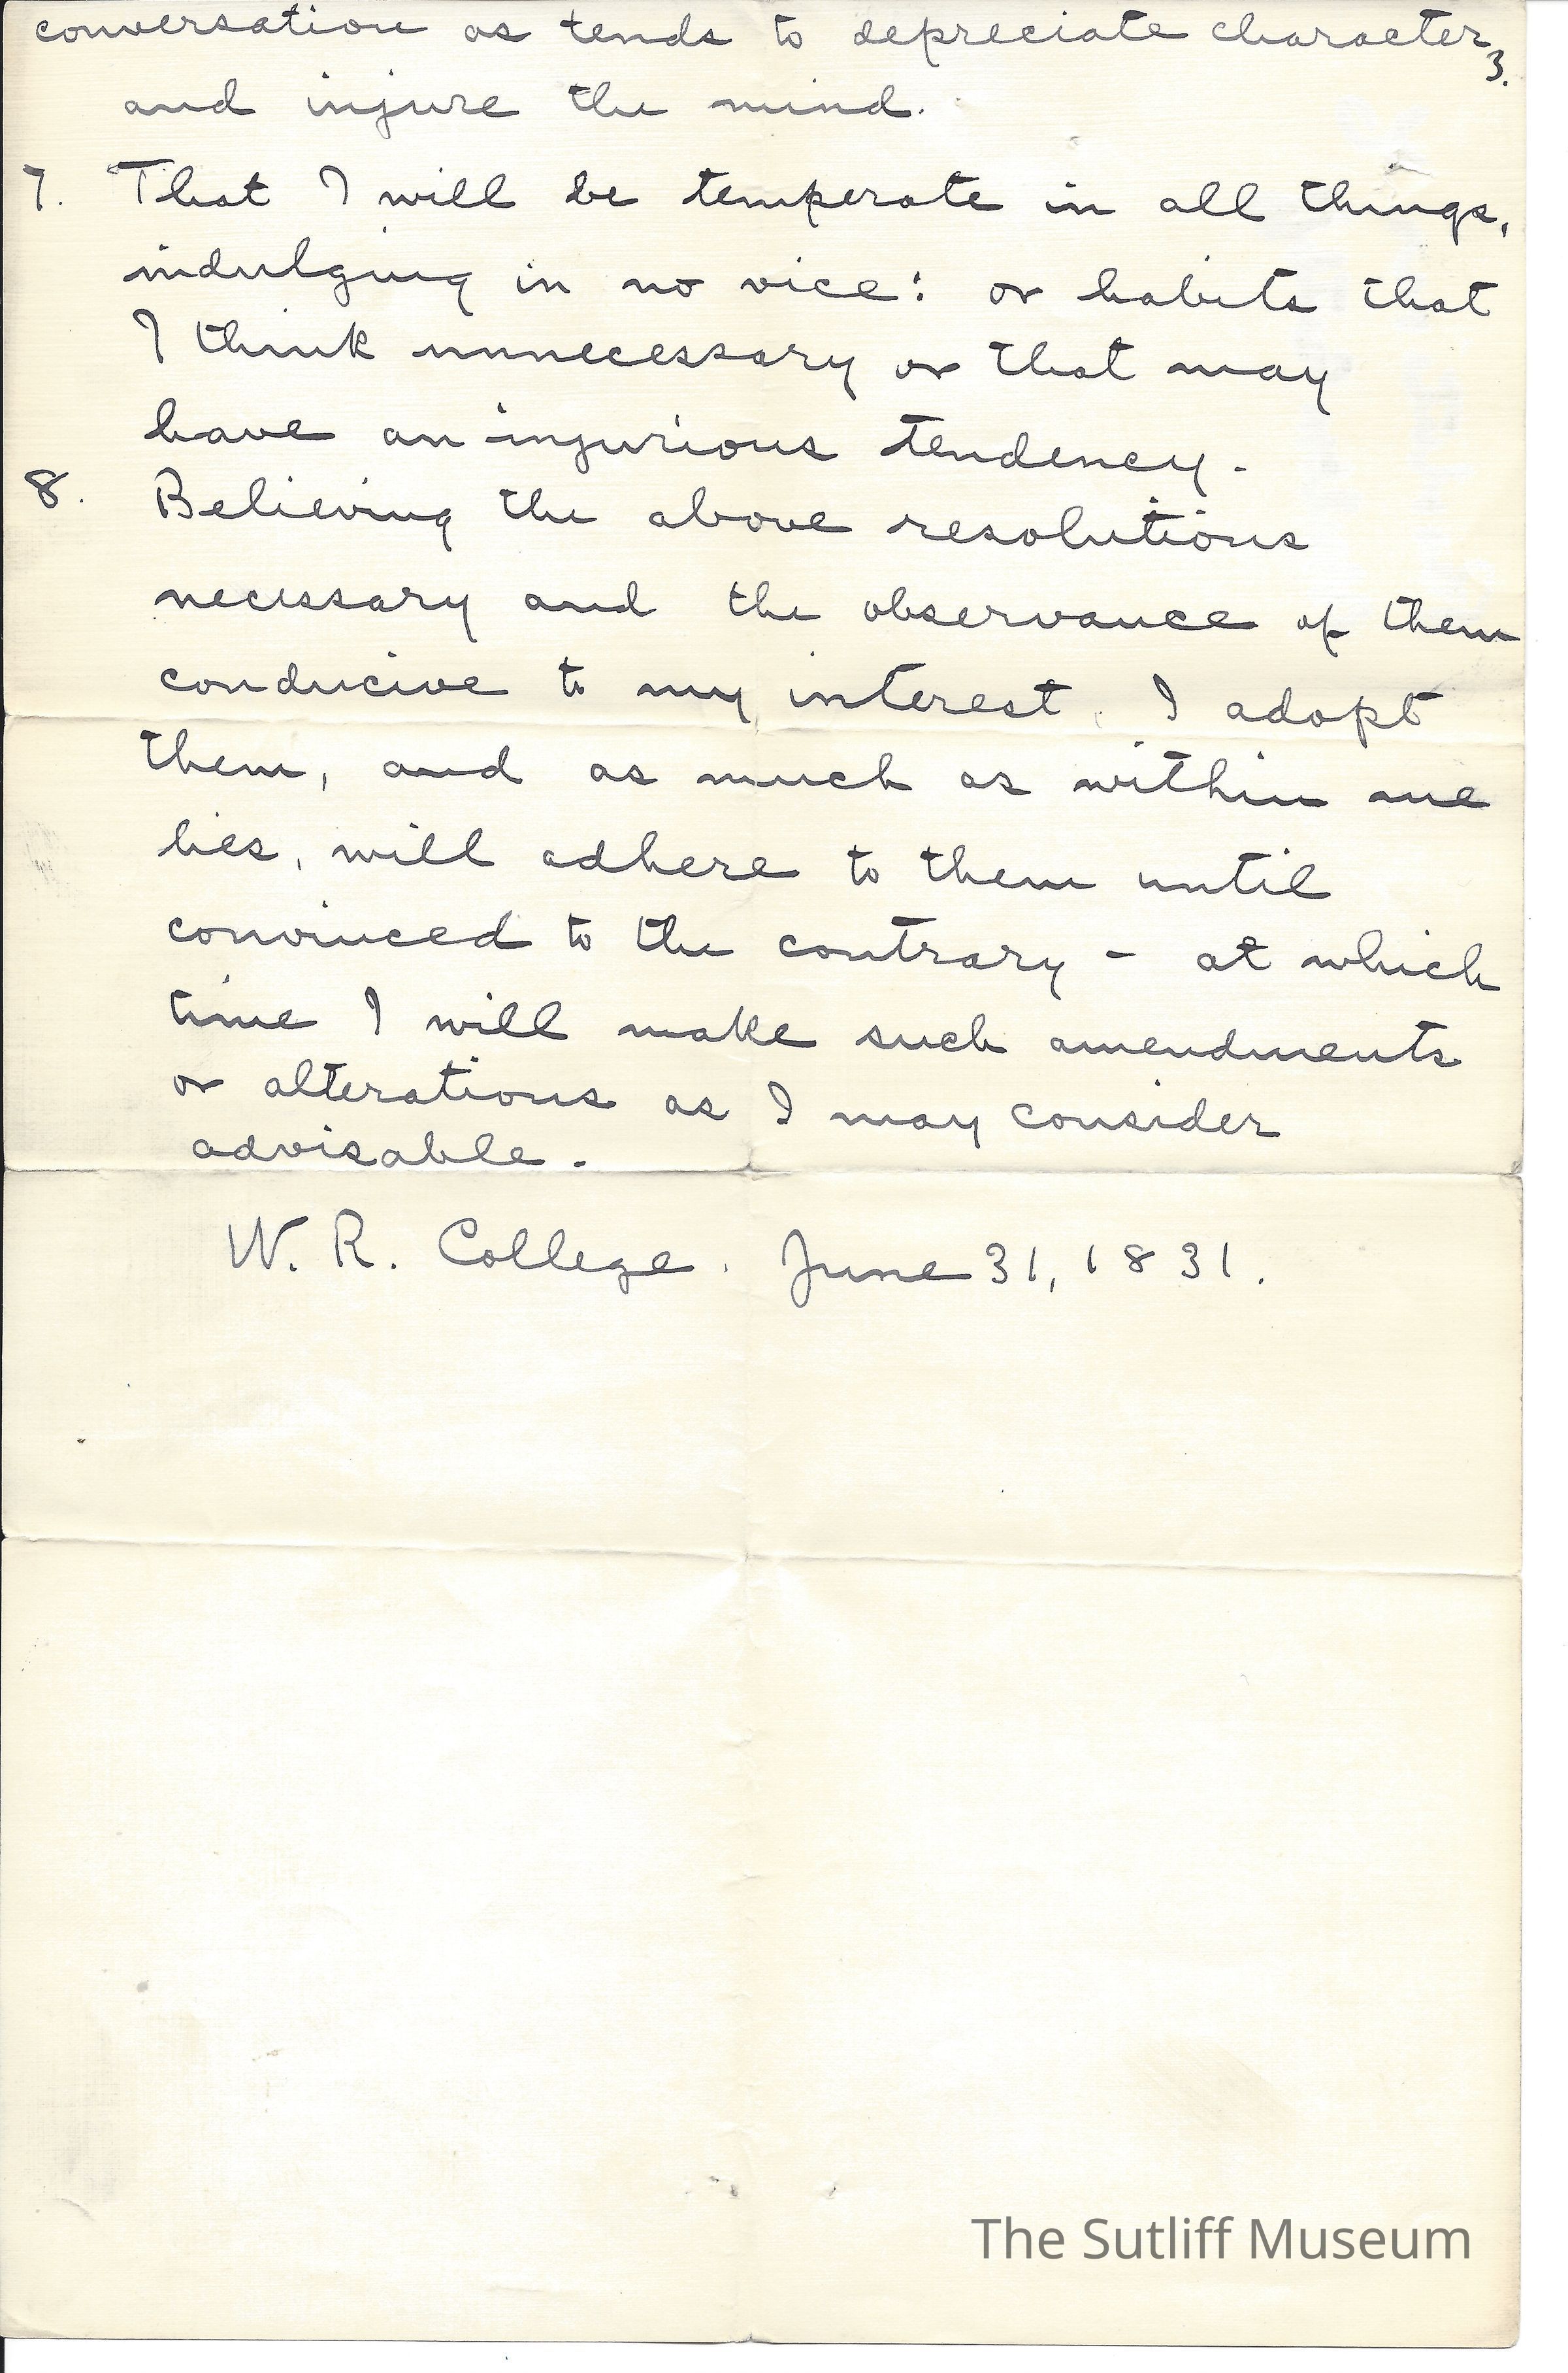 conversation as tends to depreciate character
3.
and injure the mind.
7. That I will be temperate in all things,
indulging in no vice: or habits that
I think unnecessary or that may
have an injurious tendency.
8. Believing the above resolutions
necessary and the observance of them
conducive to my interest, I adopt
them, and as much as within me
lies, will adhere to them until
convinced to the contrary - at which
time I will make such amendments
or alterations as I may consider
advisable.
W. R. College. June 31, 1831.
The Sutliff Museum